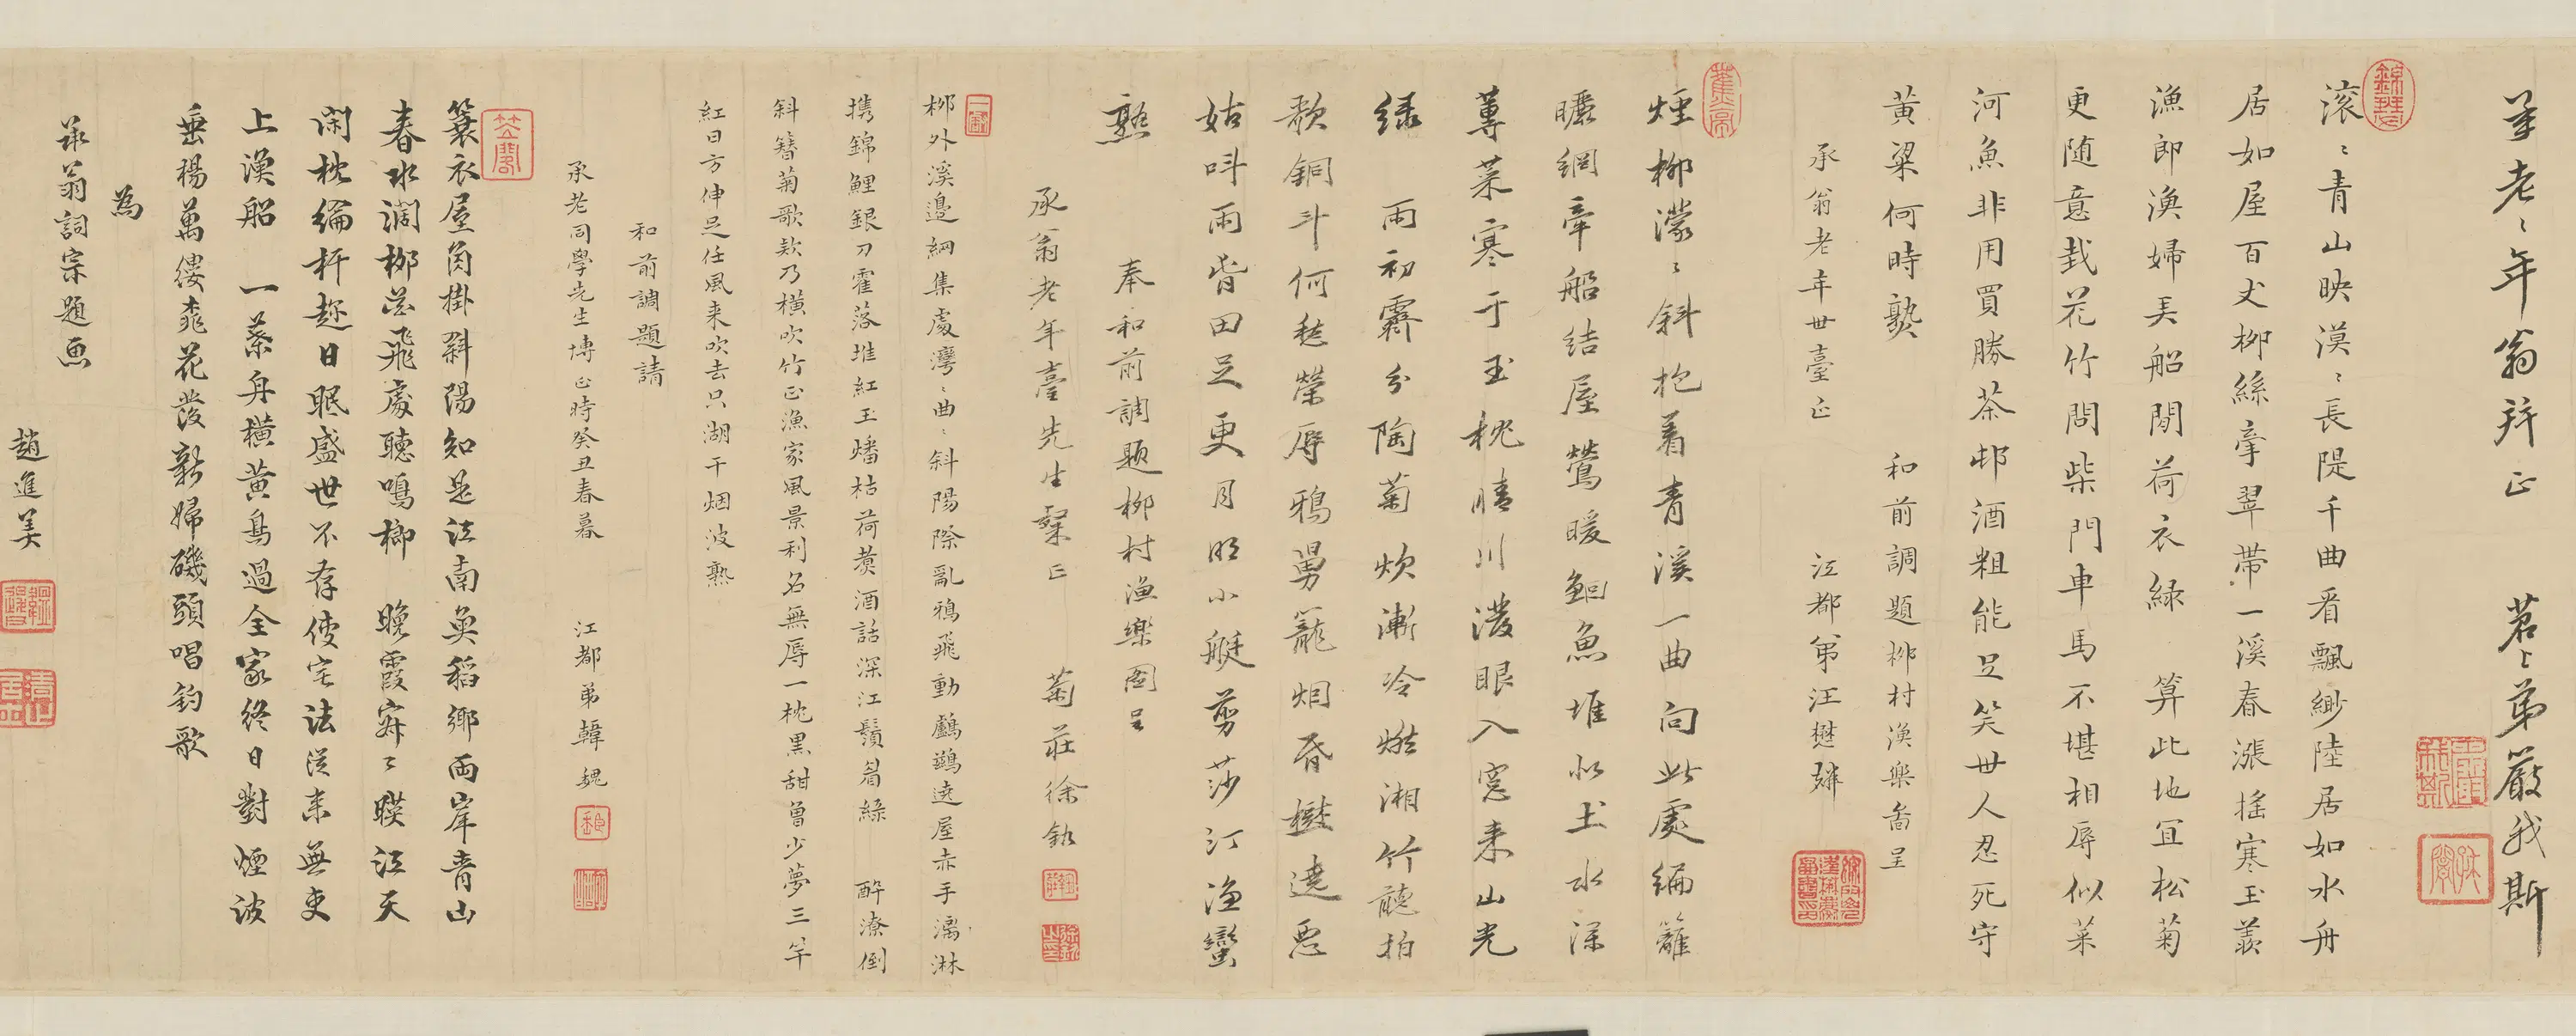 年老〻年翁辝正　苕上弟嚴我斯
滾〻青山映漠〻長隄千曲看飄緲陸居如水舟
居如屋百丈柳絲牽翠帶一溪春漲搖寒玉羨
漁郎漁婦美船閒荷衣綠　算此地宜松菊
更随意栽花竹問柴門車馬不堪相辱似菜
河魚非用買勝茶邨酒粗能足笑世人忍死守
黄粱何時熟　和前調題柳村漁樂啚呈
承翁老年世臺正　江都弟江懋
煙柳濛〻斜抱着青溪一曲向此處編籬
曬網牽船結屋鶯暖魚堆似土水深
蓴菜寒于玉枕晴川濃眼入窓来山光
绿　雨初霽分陶菊炊漸冷燃湘竹聽拍
歌銅斗何愁榮辱鴉舅籠烟昏遶惡
姑呌雨当田足更月明小艇剪莎汀漁蠻
熟　奉和前調题柳村渔樂圖呈
承翁老年臺先生粲正　菊莊徐釚
柳外溪邊網集處灣〻曲〻斜陽際亂鴉飛動鸕鷀遶屋赤手漓淋
携錦鯉銀刀霍落堆紅玉燔枯荷煑酒話深江鬚眉綠　醉潦倒
斜簪菊歌欸乃横吹竹正漁家風景利名無辱一枕黒甜曾少夢三竿
紅日方伸足任風来吹去只湖干烟波熟
和前調題請
承老同學先生博正時癸丑春暮　江都弟韓魏
簑衣屋角掛斜陽知是江南魚稻鄉両岸青山
春水濶柳花飛處聽鳴榔　晚霞䆮〻暎江天
閑枕綸杆趂日眠盛世不存傜宅法從来無吏
上漁船　一葉舟横黄鳥過全家終日對煙波
垂楊萬縷桃花發新婦磯頭唱釣歌
為
承翁詞宗題画
趙進美